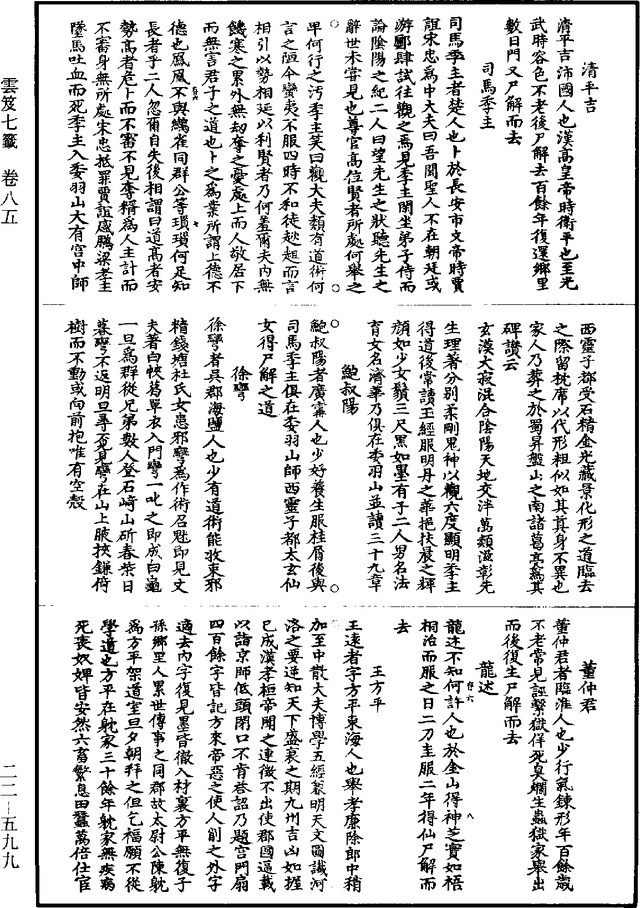 清平吉
清平吉沛國人也漢高皇帝時衛平也至光
武時容色不老後尸解去百餘年復還鄉里
數日門又尸解而去
司馬季主
司馬季主者楚人也卜於長安市文帝時賈
誼宋忠為中大夫曰吾聞聖人不在朝廷或
游鄽肆試往觀之焉見季主閑坐弟子侍而
論陰陽之紀二人曰望先生之狀聽先生之
辭世未嘗見也尊官高位賢者所處何舉之
卑何行之污季主笑曰觀大夫類有道術何
言之陋今蠻夷不服四時不和徒趑趄而言
相引以勢相延以利賢者乃何羞爾夫內無
饑寒之累外無劫奪之憂處上而人敬居下
而無害君子之道也卜之為業所謂上德不
德也鳳凰不與鷃雀同群公等瑣瑣何足知
長者乎二人忽爾自失後相謂曰道高者安
勢高者危卜而不審不見奪糈為人主計而
不審身無所處宋忠抵罪賈誼感鵩梁孝主
墜馬吐血而死季主入委羽山大有宮中師
西靈子都受石精金光藏景化形之道臨去
之際留枕席以代形粗似如其真身不異也
家人乃葬之於蜀昇盤山之南諸葛亮為其
碑讚云
玄漠大寂混合陰陽天地交泮萬類滋彰先
生理著分別柔剛鬼神以觀六度顯明季主
得道後常讀玉經服明丹之華挹扶晨之暉
顏如少女鬚三尺黑如墨有子二人男名法
育女名濟華乃俱在委羽山並讀三十九章
鮑叔陽
鮑叔陽者廣甯人也少好養生服桂屑後與
司馬季主俱在委羽山師西靈子都太玄仙
女得尸解之道
徐彎
徐彎者吳郡海鹽人也少有道術能收束邪
精錢塘杜氏女患邪彎為作術召魅即見丈
夫著白帢葛單衣入門彎一叱之即成白龜
一旦為群從兄弟數人登石崎山斫春柴日
暮彎不返明旦尋覓見彎在山上腋挾鎌倚
樹而不動或向前抱唯有空殼
董仲君
董仲君者臨淮人也少行氣鍊形年百餘歲
不老常見誣繫獄佯死臭爛生蟲獄家舉出
而後復生尸解而去
龍述
龍述不知何許人也於金山得神芝實如梧
桐治而服之日二刀圭服二年得仙尸解而
去
王方平
王遠者字方平東海人也舉孝廉除郎中稍
加至中散大夫博學五經兼明天文圖讖河
洛之要逆知天下盛衰之期九州吉凶如握
已成漢孝桓帝聞之連徵不出使郡國逼載
以詣京師低頭閉口不肯答詔乃題宮門扇
四百餘字皆記方來帝惡之使人削之外字
適去內字復見墨皆徹入材裏方平無復子
孫鄉里人累世傳事之同郡故太尉公陳躭
為方平架道室旦夕朝拜之但乞福願不從
學道也方平在躭家三十餘年躭家無疾病
死喪奴婢皆安然六畜繁息田蠶萬倍仕宦
雲笈七籤　卷八五
二二—五九九